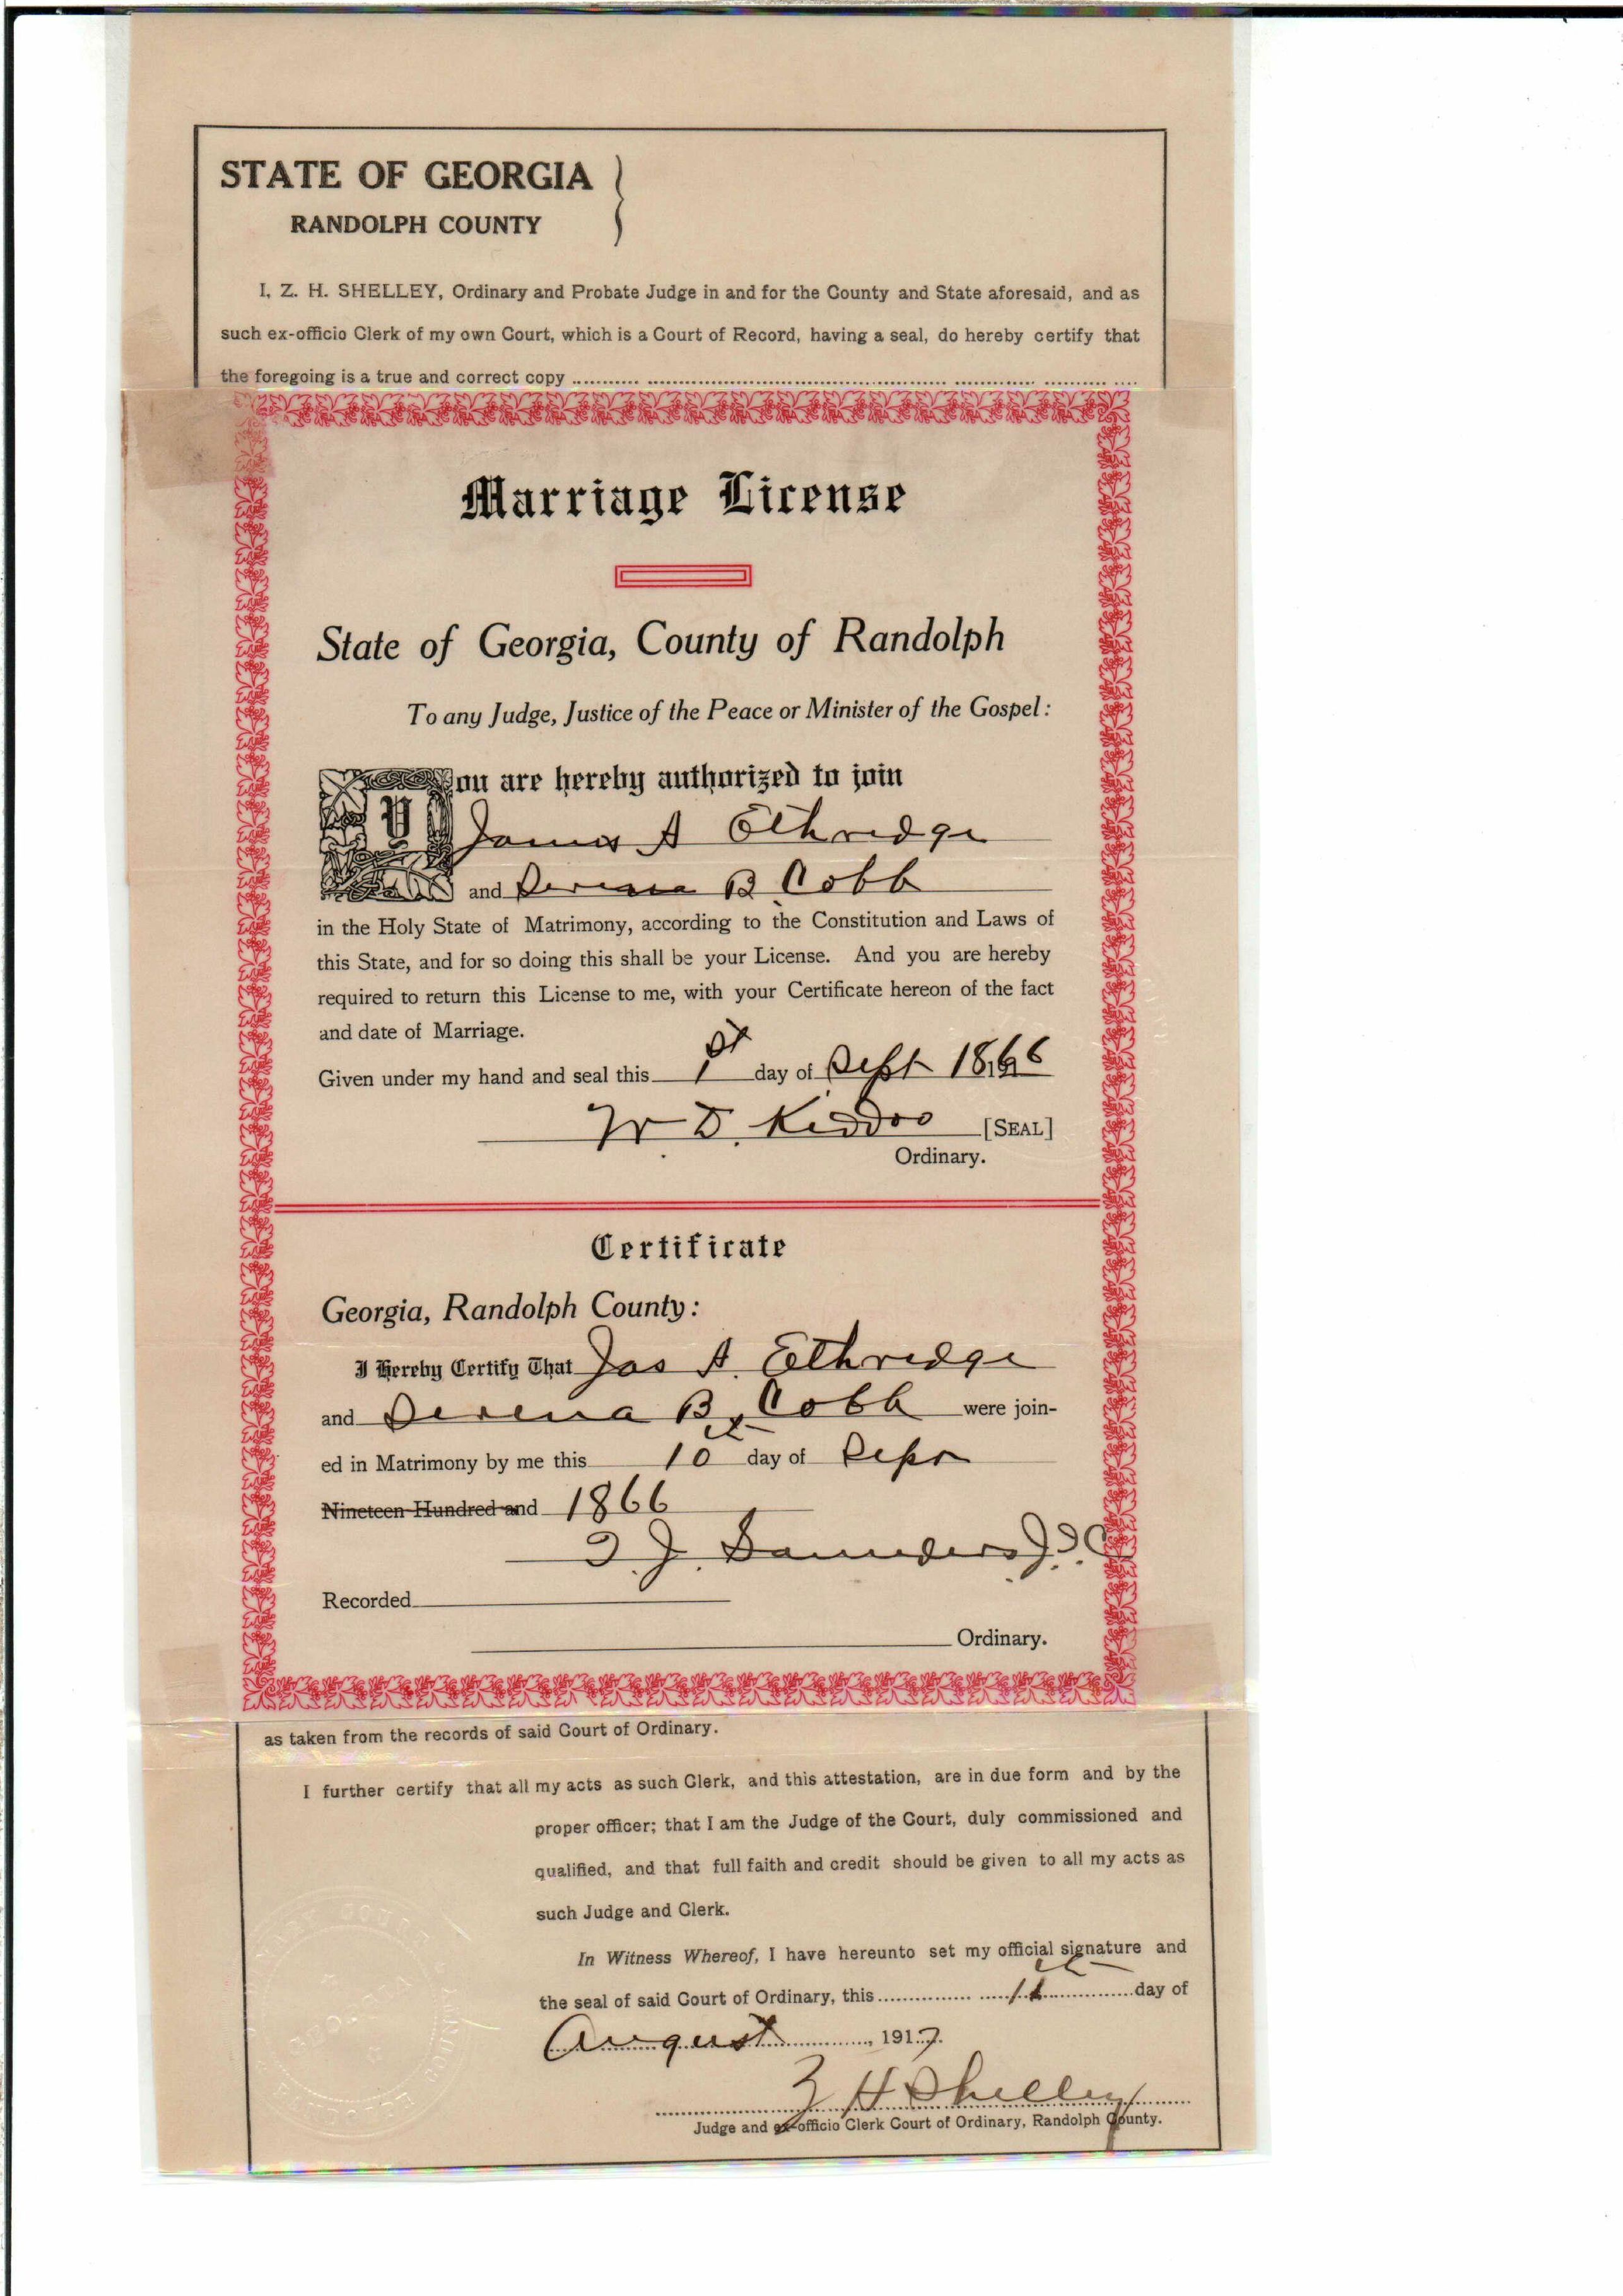 STATE OF GEORGIA
RANDOLPH COUNTY
I, Z. H. SHELLEY, Ordinary and Probate Judge in and for the County and State aforesaid, and as
such ex-officio Clerk of my own Court, which is a Court of Record, having a seal, do hereby certify that
the foregoing is a true and correct copy
Marriage License
State of Georgia, County of Randolph
To any Judge, Justice of the Peace or Minister of the Gospel:
You are hereby authorized to join
James A Ethredge
and Serena B. Cobb
in the Holy State of Matrimony, according to the Constitution and Laws of
this State, and for so doing this shall be your License. And you are hereby
required to return this License to me, with your Certificate hereon of the fact
and date of Marriage.
Given under my hand and seal this 1st day of Sept 1866
W. D. Kiddoo [SEAL]
Ordinary.
Certificate
Georgia, Randolph County:
I Hereby Certify That Jas A. Ethredge
and Serena B. Cobb were join-
ed in Matrimony by me this 10 day of Sept
Nineteen Hundred and 1866
J. Saunders
Recorded
Ordinary.
as taken from the records of said Court of Ordinary.
I further certify that all my acts as such Clerk, and this attestation, are in due form and by the
proper officer; that I am the Judge of the Court, duly commissioned and
qualified, and that full faith and credit should be given to all my acts as
such Judge and Clerk.
In Witness Whereof, I have hereunto set my official signature and
the seal of said Court of Ordinary, this day of
August, 1917.
Z H Shelley
Judge and ex-officio Clerk Court of Ordinary, Randolph County.